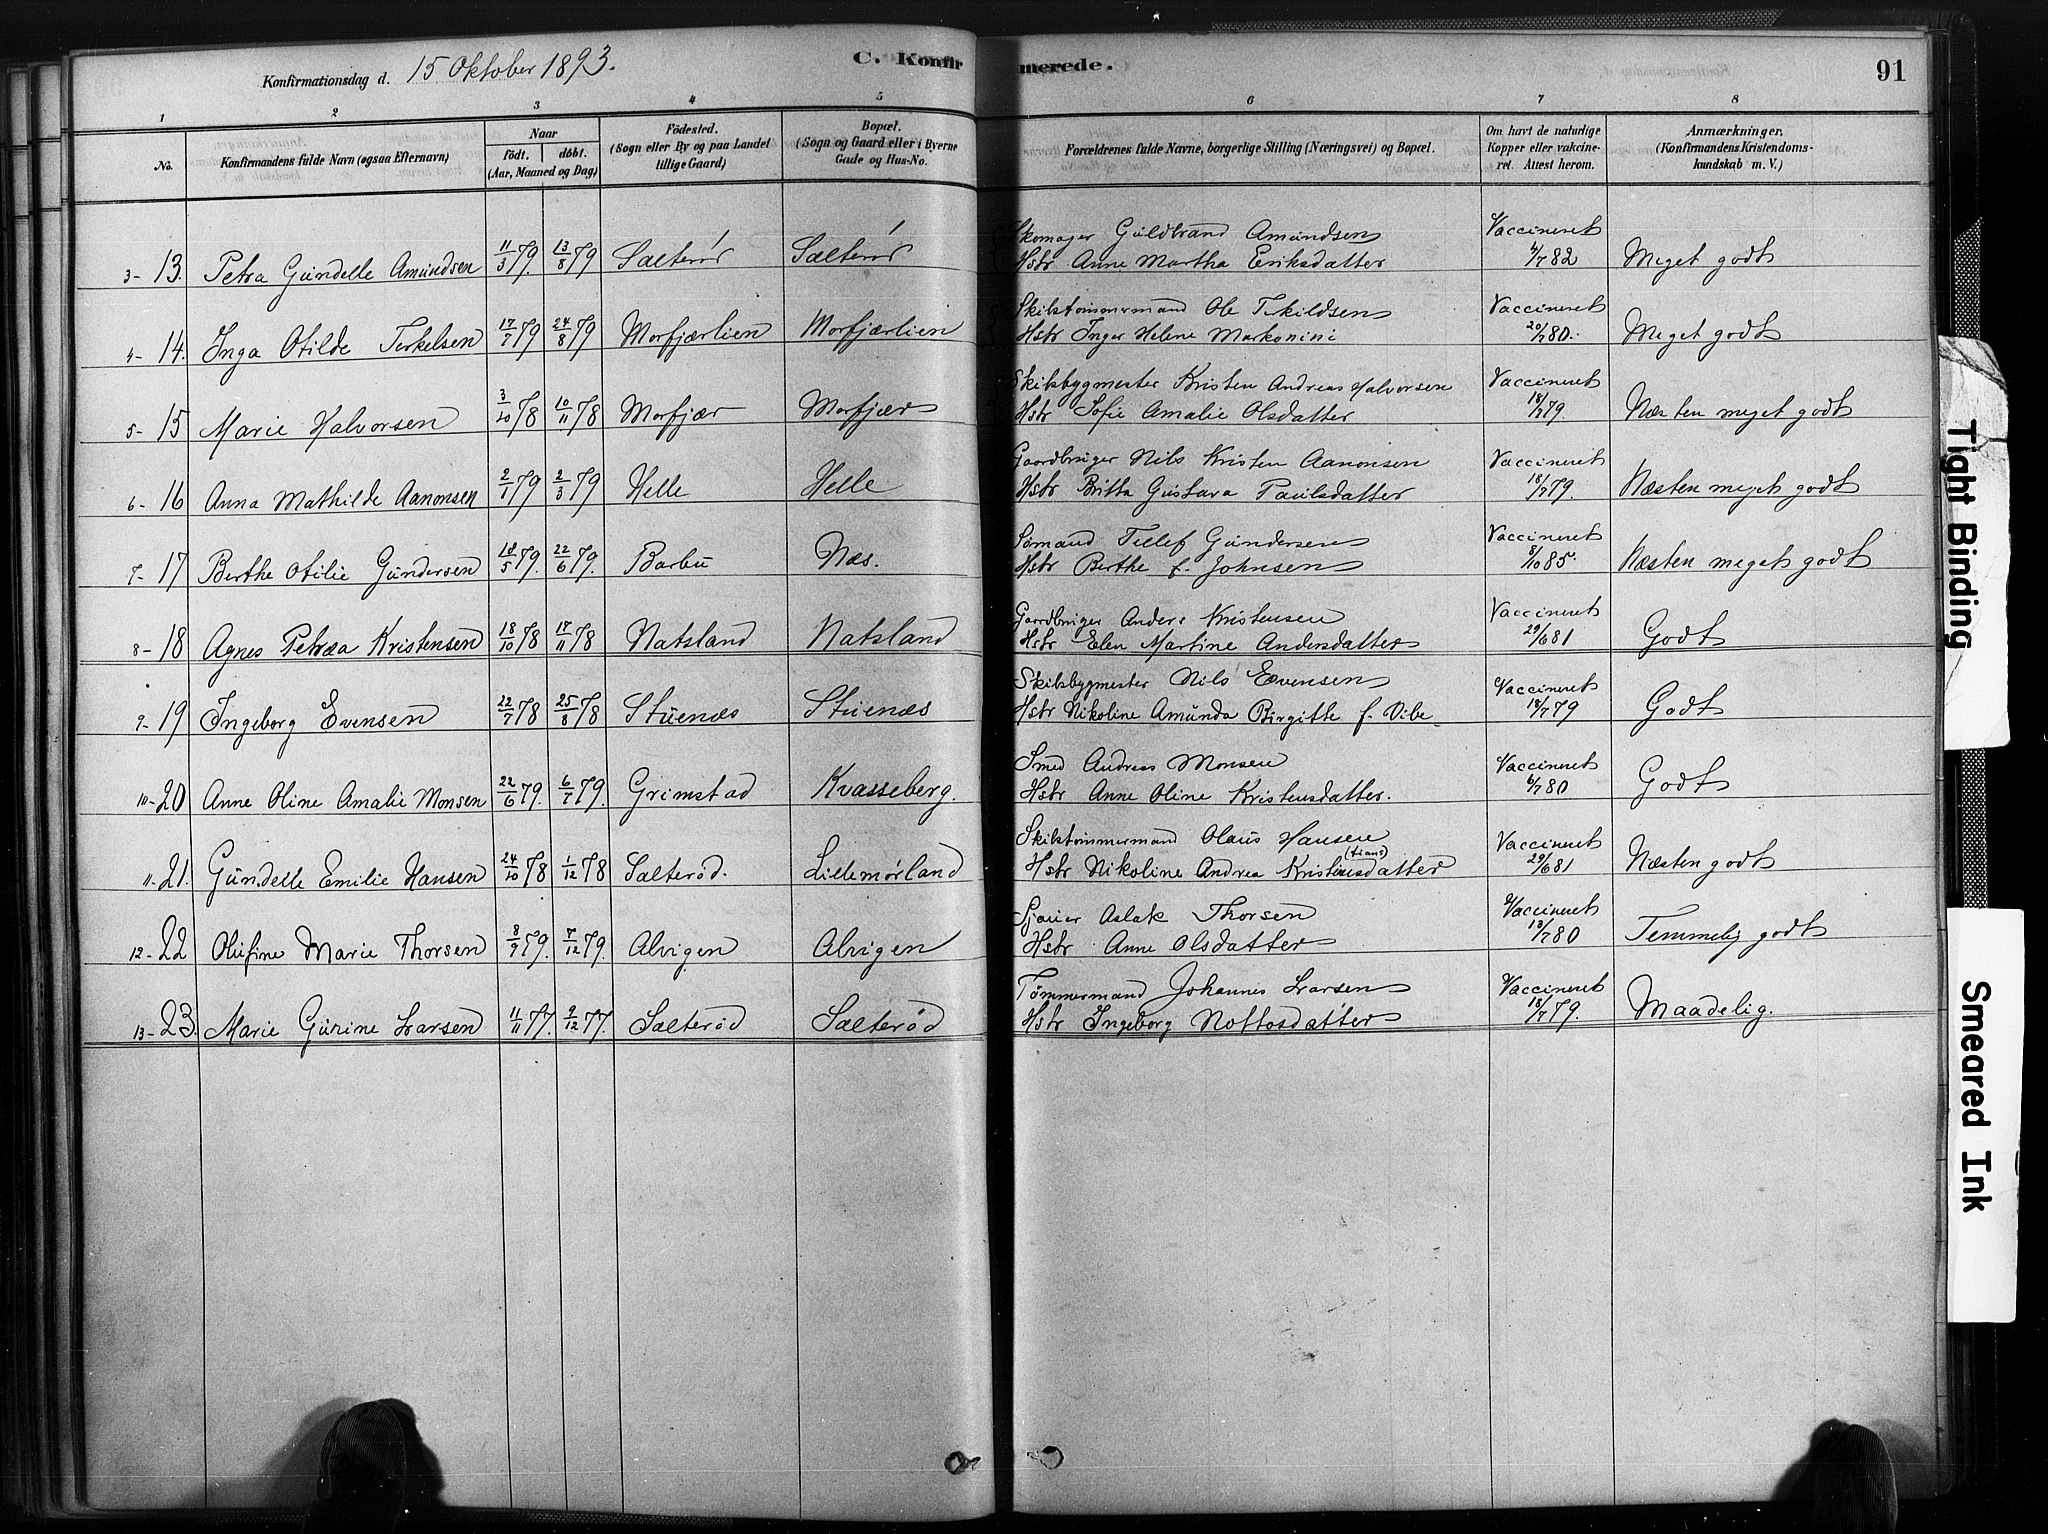 Konfirmationsdag d. 15 Oktober 1893.
C. Konfirmerede.
91
1 2 3 4 5 6 7 8
No.
Konfirmandens fulde Navn (ogsaa Efternavn)
Naar
födt. döbt.
(Aar, Maaned og Dag)
Födested.
(Sogn eller By og paa Landet
tillige Gaard)
Bopæl.
(Sogn og Gaard eller i Byerne
Gade og Hus-No.
Forældrenes fulde Navne, borgerlige Stilling (Næringsvei) og Bopæl.
Om havt de naturlige
Kopper eller vakcine-
ret. Attest herom.
Anmærkninger.
(Konfirmandens Kristendoms-
kundskab m. V.)
3- 13. Petra Gundelle Amundsen 11/3 79 13/8 79 Salterör Salterör Skomager Guldbrand Amundsen Vaccineret
Hstr Anne Martha Eriksdatter 4/7 82 Meget godt
4- 14. Inga Otilde Terkelsen 17/7 79 24/8 79 Morfjærlien Morfjærlien Skibstømmermand Ole Terkildsen Vaccineret
Hstr Inger Helene Markonini 20/7 80. Meget godt
5- 15 Marie Halvorsen 3/10 78 10/11 78 Morfjær Morfjær Skibsbygmester Kristen Andreas Halvorsen Vaccineret
Hstr Sofie Amalie Olsdatter 18/7 79. Næsten meget godt
6- 16 Anna Mathilde Aanonsen 2/1 79 2/3 79 Helle Helle Gaardbruger Nils Kristen Aanonsen Vaccineret
Hstr Britta Gustava Paulsdatter 18/7 79. Næsten meget godt
7- 17 Berthe Otilie Gundersen 18/5 79. 22/6 79. Barbu Næs. Sømand Tellef Gundersen Vaccineret
Hstr Berthe f. Johnsen 8/10 85. Næsten meget godt
8- 18 Agnes Petræa Kristensen 18/10 78 17/11 78 Natsland Natsland Gaardbruger Anders Kristensen Vaccineret
Hstr Elen Martine Andersdatter 29/6 81 Godt
9- 19 Ingeborg Evensen 22/7 78 25/8 78 Stuenæs Stuenæs Skibsbygmester Nils Evensen Vaccineret
Hstr Nikoline Amunda Birgitte f. Vibe 18/7 79 Godt
10- 20 Anne Oline Amalie Monsen 22/6 79. 6/7 79. Grimstad Kvasseberg. Smed Andreas Monsen Vaccineret
Hstr Anne Oline Kristensdatter. 6/7 80 Godt
11- 21. Gundelle Emilie Hansen 24/10 78 1/12 78 Salterød. Lillemørland Skibstømmermand Olaus Hansen Vaccineret
Hstr Nikoline Andrea Kristensdatter (tians) 29/6 81 Næsten godt
12- 22 Olufine Marie Thorsen 8/9 79. 7/12 79. Alvigen Alvigen Sjauer Aslak Thorsen Vaccineret
Hstr Anne Olsdatter 13/7 80 Temmelig godt
13- 23. Marie Gurine Larsen 11/11 77. 9/12 77. Salterød Salterød Tømmermand Johannes Larsen Vaccineret
Hstr Ingeborg Nottosdatter 18/7 79 Maadelig.
Tight Binding
Smeared Ink